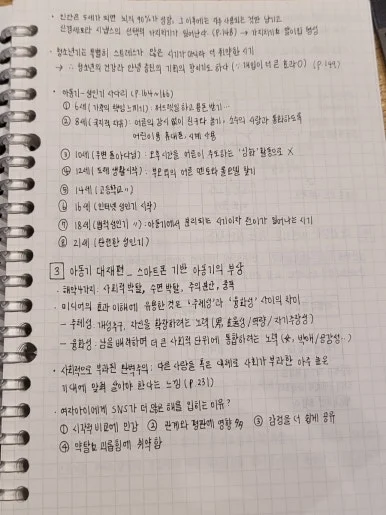 · 인간은 5세가 되면 뇌의 90%가 성장, 그 이후에는 자주 사용되는 것만 남기고
신경세포와 시냅스의 선택적 가지치기가 일어난다 (P.148) → 가지치기로
· 청소년기는 특별히 스트레스가 많은 시기가 아니라 더 취약한 시기
→ ∴ 청소년의 건강과 안녕 증진의 기회의 창이기도 하다 (∵개입이 더 큰 효과O) (P.149)
· 아동기-성인기 사다리 (P.164~166)
① 6세 (가족의 책임 느끼기) : 허드렛일하고 용돈 받기…
② 8세 (국지적 자유) : 어른의 감시 없이 친구와 놀기, 소수의 사람과 통화하도록
어린이용 휴대폰, 시계 사용
③ 10세 (주변 돌아다님) : 오후시간을 어른이 주도하는 '심화' 활동으로 X
④ 12세 (도제 생활시작) : 부모외의 어른 멘토와 돌보일 찾기
⑤ 14세 (고등학교 〃)
⑥ 16세 (인터넷 성인기 시작)
⑦ 18세 (법적성인기 〃) : 아동기에서 분리되는 시기이자 전이가 일어나는 시기
⑧ 21세 (완전한 성인기)
3 아동기 대재편 _ 스마트폰 기반 아동기의 부상
· 해악 4가지 : 사회적 박탈, 수면 박탈, 주의 분산, 중독
· 미디어의 효과 이해에 유용한 것은 '주체성'과 '융화성' 사이의 차이
- 주체성 : 개성추구, 자신을 확장하려는 노력 (男, 효율성/역량/자기주장성)
- 융화성 : 남을 배려하며 더 큰 사회적 단위에 통합하려는 노력 (女, 박애/공감성..)
· 사회적으로 부과된 완벽주의 : 다른 사람들 혹은 대체로 사회가 부과한 아주 높은
기대에 맞춰 살아야 한다는 느낌 (P.231)
· 여자아이에게 SNS가 더 많은 해를 입히는 이유?
① 시각적 비교에 민감 ② 관계와 평판에 영향 ③ 감정을 더 쉽게 공유
④ 약탈과 괴롭힘에 취약함